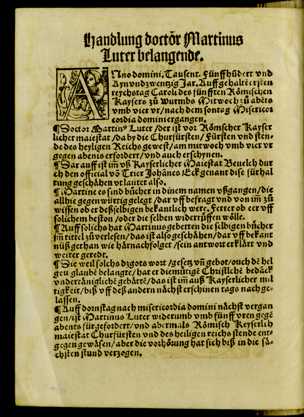 Handlung doctor Martinus
Luter belangende.
Anno domini. Tausent. Fünffhūdert vnd
Aynvndzwentzig Jar. Auff gehaltē erstē
reychstag Caroli des fünfften Römischen
Kaysers zu Wurmbs Mitwoch zu abēts
vmb vier vr/nach dem sontag Misericor
cordia dominiergangen.
¶ Doctor Martin9 Luter/der ist vor Römischer Kayser
licher maiestat/da by die Churfürsten/Fürsten vnd sten-
de des heyligen Reichs gewest/am mitwoch vmb vier vr
gegen abens erfordert/vnd auch erschynen.
¶ Dar auff ist im vß Kayserlicher Maiestat Beuelch dur
ch den official vō Trier Johānes Eck genant dise fürhal
tung geschähen vrlauter also.
¶ Martine es sind bücher in dinem namen vßgangen/die
allhie gegenwürtig gelegt/dar vff befragt vnd von im zu
wissen ob er deß selbigen bekantlich were. Fetter ob er vff
solichem beston/oder die selben widerrüffen wölle.
¶ Auff solichs hat Martinus gebetten die selbigen bücher
im tittel zu verlesen/das ist also geschähen/dar vff bekant
nüß gethan wie härnachfolget/sein antwort erklärt vnd
weiter geredt.
¶ Die weil solchs das gots wort/gesetz vñ gebot/ouch dē hel
geu glaubē belangte/hat er die mütige Christliche bedäck
vnderthānigliche gebättē/das ist im auß Kayserlicher mil
tigkeit/biß vff deß andern nächst erschinen tags nach ge-
lassen.
¶ Auff dornstag nach misericordia domini nächst vergan
gen/ist Martinus Luter widerumb vmb fünff vren gegē
abents für gefordert/vnd abermals Römisch Keyserlich
maiestat Churfürsten vnd des heiligen reichs stende ent-
gegen gewäsen/aber die vorhörung hat sich biß in die sä-
chsten stund verzogen.